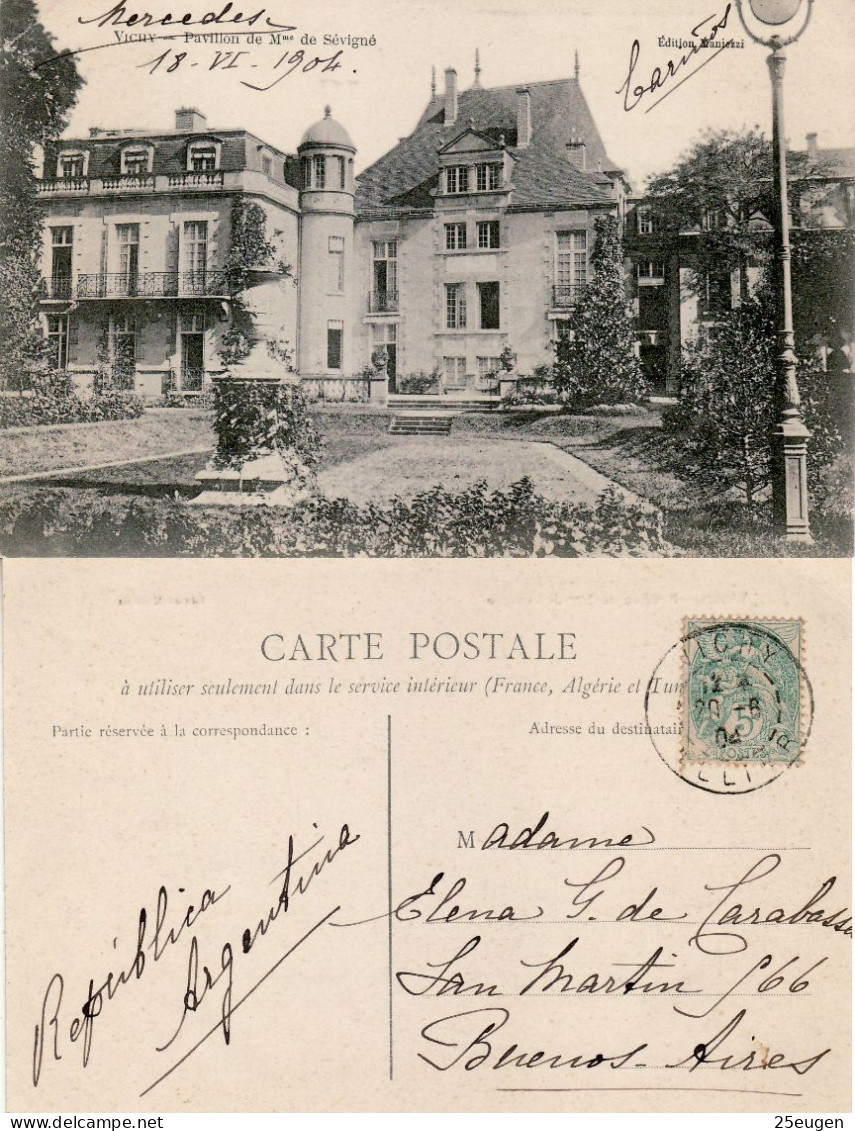 Mercedes
VICHY — Pavillon de Mme de Sévigné
Édition
18-VI-1904.
Cariños
CARTE POSTALE
à utiliser seulement dans le service intérieur (France, Algérie et Tun
Partie réservée à la correspondance :
Adresse du destinatair
VICHY
20 -6
04
5
POSTES
Madame
Elena G. de Carabassa
San Martin 966
Buenos-Aires
República
Argentina
25eugen